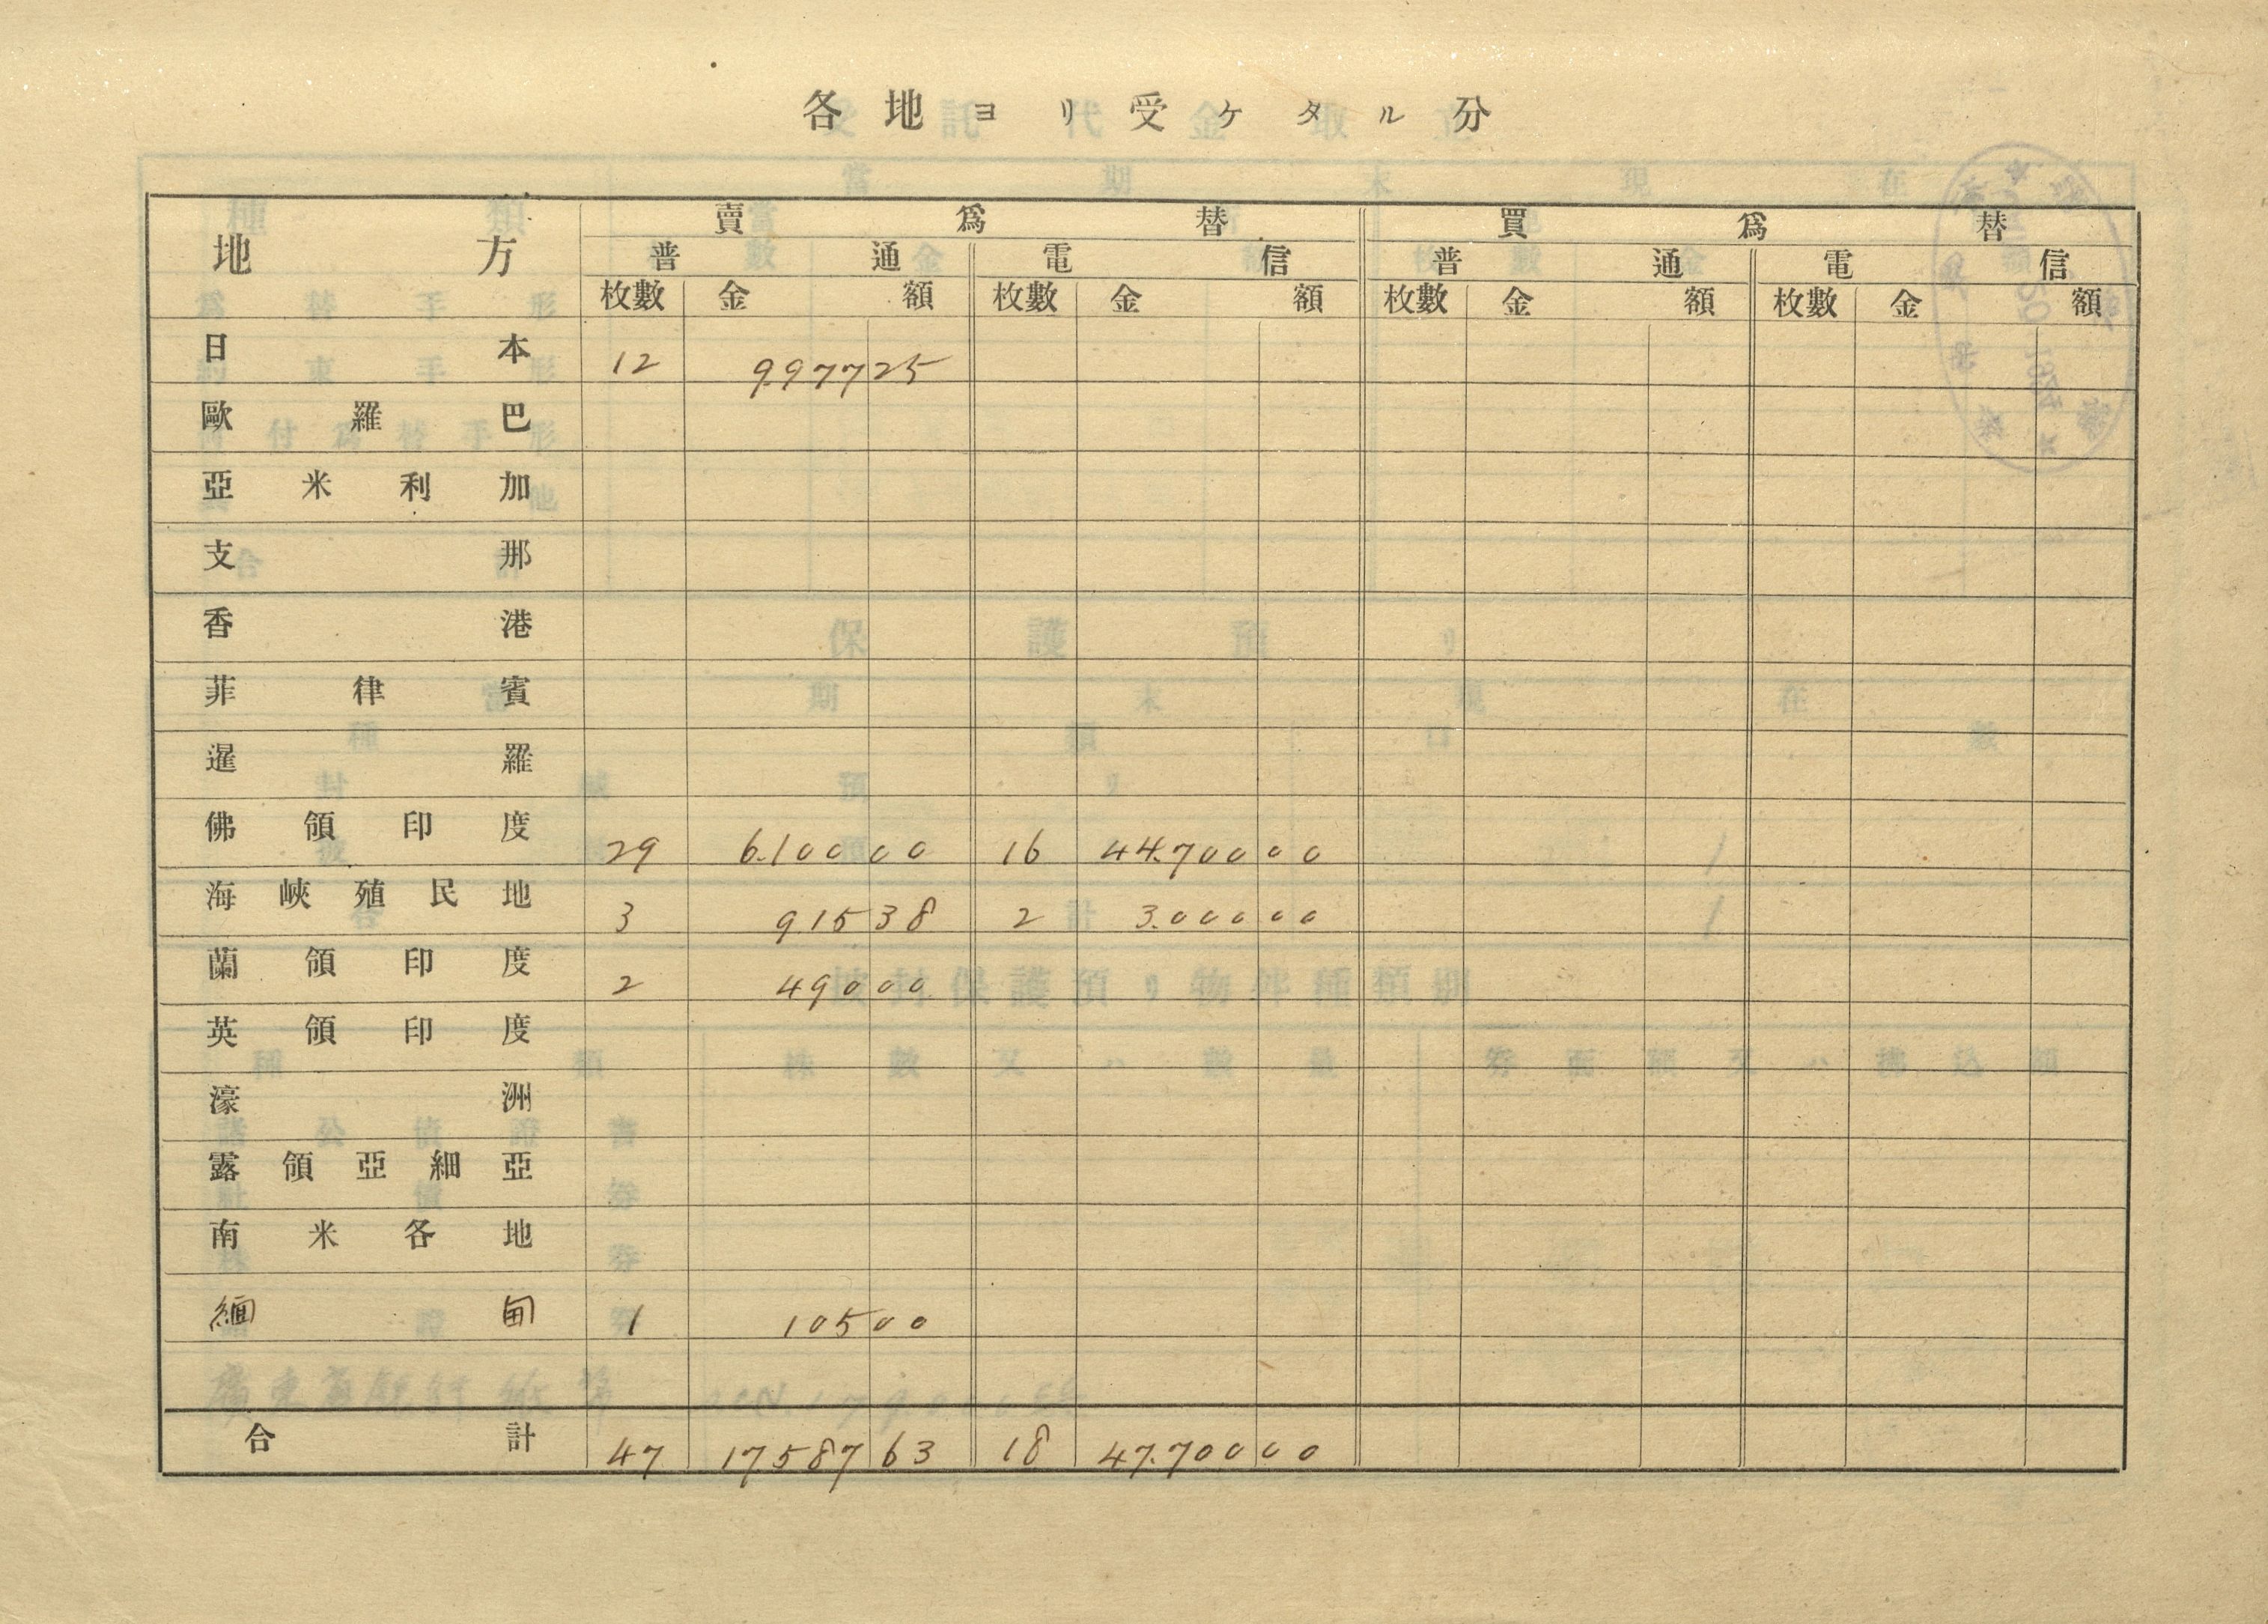 各地ヨリ受ケタル分
地方 賣爲替 買爲替
普通 電信 普通 電信
枚數 金額 枚數 金額 枚數 金額 枚數 金額
日本 12 9.977 25
歐羅巴
亞米利加
支那
香港
菲律賓
暹羅
佛領印度 29 6.100 00 16 44.700 00
海峽殖民地 3 915 38 2 3.000 00
蘭領印度 2 490 00
英領印度
濠洲
露領亞細亞
南米各地
緬甸 1 105 00
合計 47 17.587 63 18 47.700 00